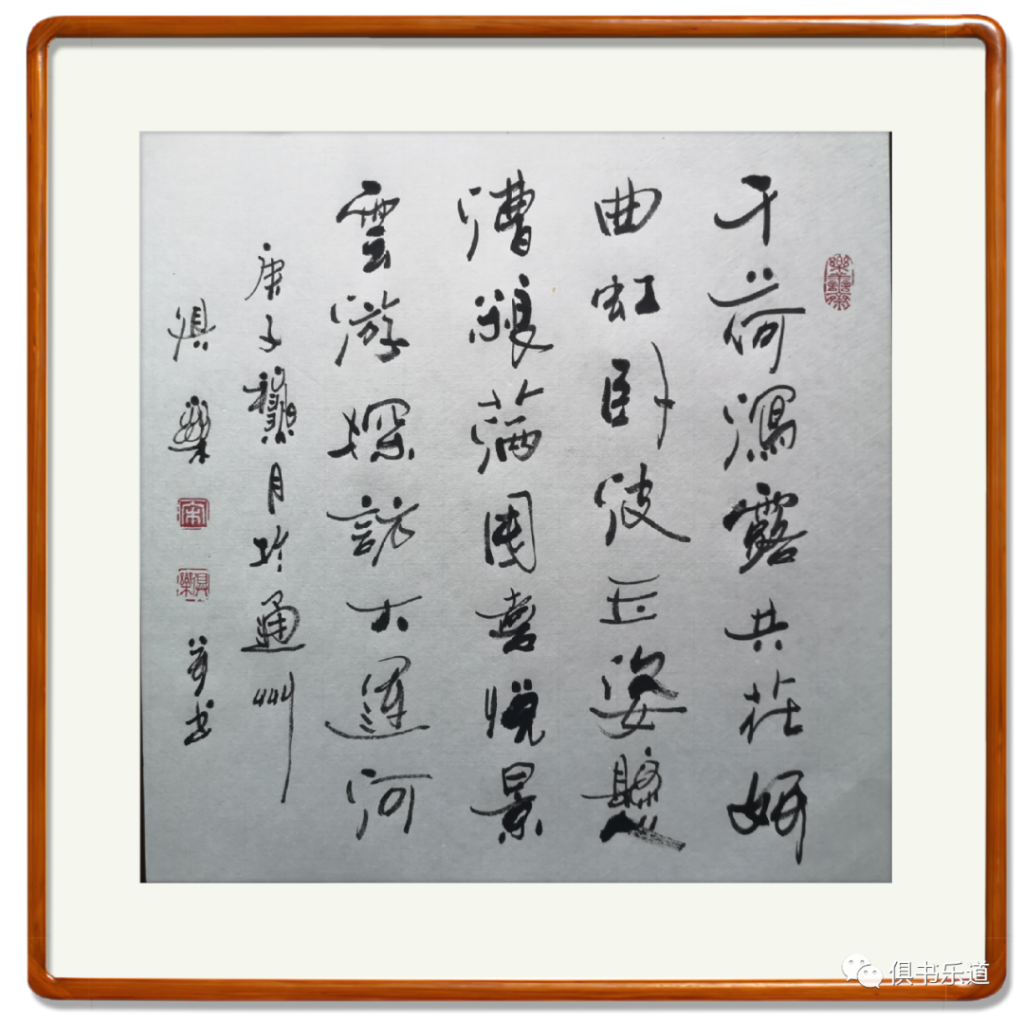 千荷瀉露共荘妍
曲虹卧波玉姿懸
漕滿園喜悦景
雲游探訪大運河
庚子龝月於通州
俱樂
宋
俱樂
并书
俱书乐道